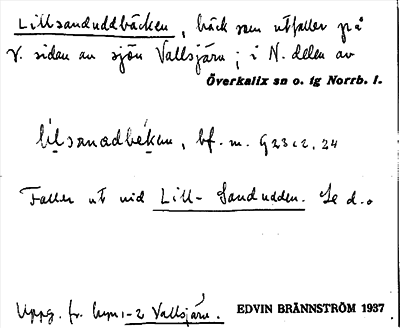 Lillsanduddbäcken, bäck som utfaller på
V. sidan av sjön Vallsjärv; i N. delen av
Överkalix sn o. tg Norrb. l.
bf. m.
Faller ut vid Lill-Sandudden. Se d.o
Uppg. fr. hem. 1-2 Vallsjärv.
EDVIN BRÄNNSTRÖM 1937